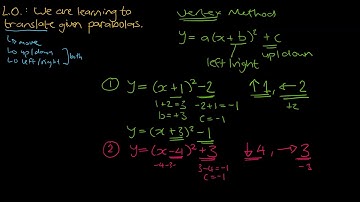 L.O.: We are learning to
translate given parabolas.
↳ move
↳ up/down
↳ left/right } both
Vertex Method
y = a(x + b)² + c
up/down
left/right
① y = (x+1)² - 2 ↑1, ← 2
1+2=3 -2+1=-1 +2
b=+3 c=-1
y = (x+3)² - 1
② y = (x-4)² + 3 ↓4, → 3
-4-3= 3-4=-1 -3
c=-1